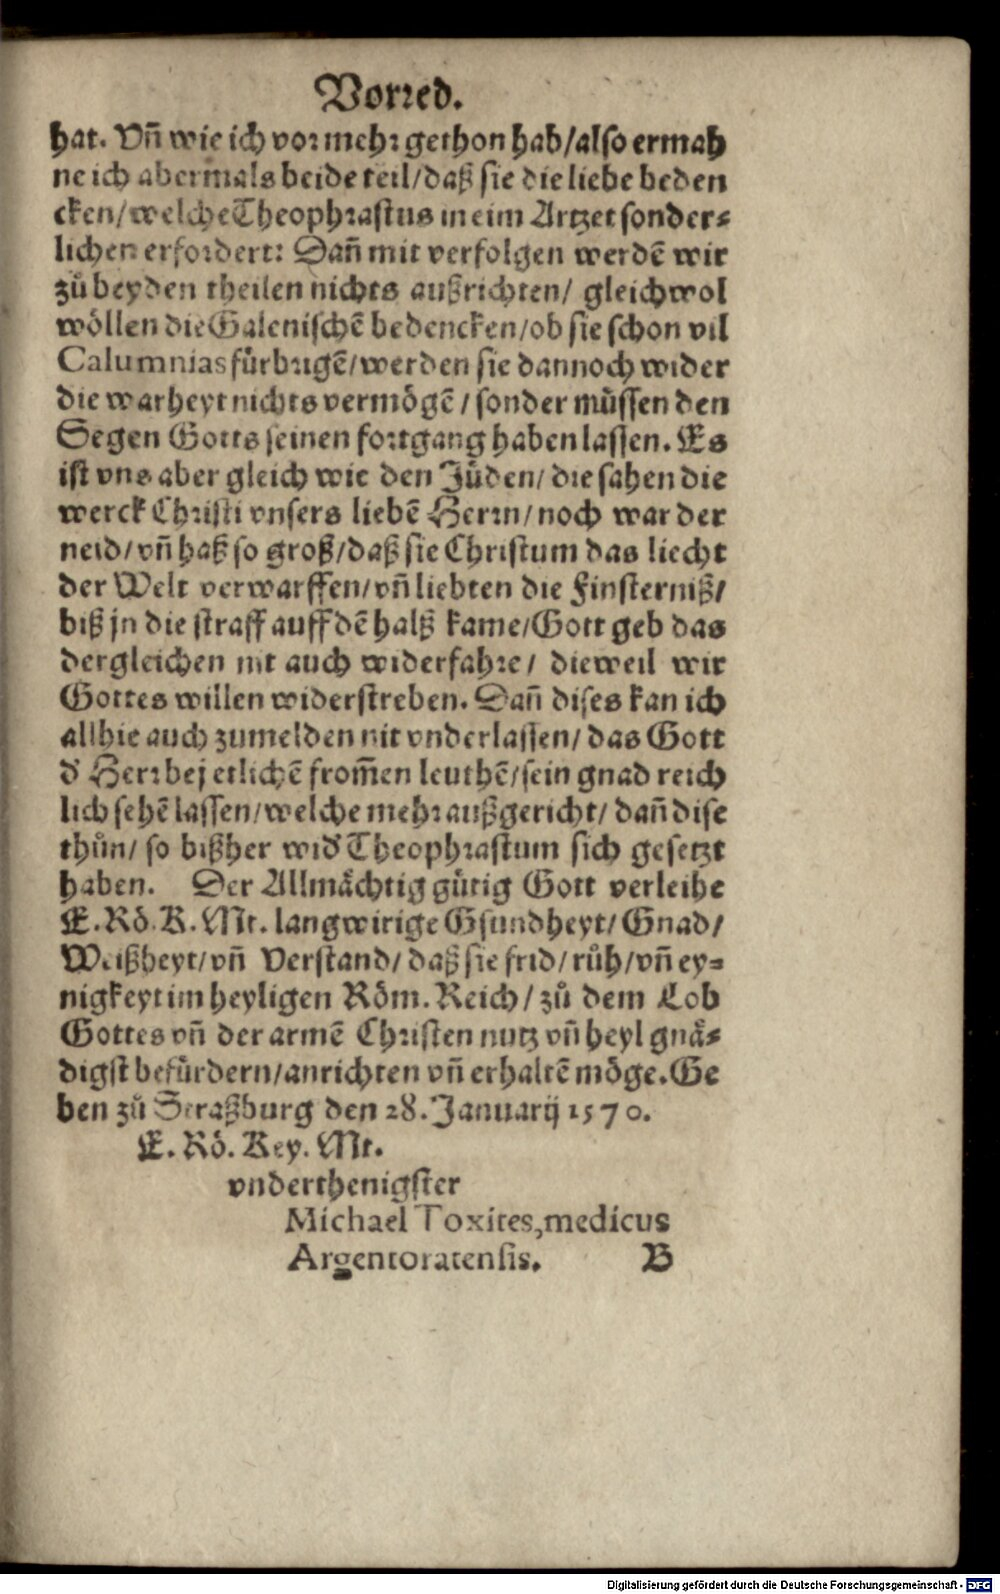 Vorred.
hat. Vñ wie ich vor mehr gethon hab/also ermah
ne ich abermals beide teil/daß sie die liebe beden
cken/welche Theophrastus in eim Artzet sonder-
lichen erfordert: Dañ mit verfolgen werdẽ wir
zů beyden theilen nichts außrichten/ gleichwol
wöllen die Galenischẽ bedencken/ob sie schon vil
Calumnias fürbrigẽ/werden sie dannoch wider
die warheyt nichts vermögẽ/sonder müssen den
Segen Gotts seinen fortgang haben lassen. Es
ist vns aber gleich wie den Jüden/die sahen die
werck Christi vnsers liebẽ Herrn/noch war der
neid/vñ haß so groß/daß sie Christum das liecht
der Welt verwarffen/vñ liebten die Finsterniß/
biß jn die straff auff dẽ halß kame/Gott geb das
dergleichen nit auch widerfahre/ dieweil wir
Gottes willen widerstreben. Dañ dises kan ich
allhie auch zumelden nit vnderlassen/das Gott
d' Herr bej etlichẽ from̃en leuthẽ/sein gnad reich
lich sehẽ lassen/welche mehr außgericht/ dañ dise
thůn/ so bißher wid' Theophrastum sich gesetzt
haben. Der Allmächtig gütig Gott verleihe
E. Rö. K. Mt. langwirige Gsundheyt/Gnad/
Weißheyt/vñ Verstand/daß sie frid/růh/vñ ey-
nigkeyt im heyligen Röm. Reich/zů dem Lob
Gottes vñ der armẽ Christen nutz vñ heyl gnä-
digst befürdern/anrichten vñ erhaltẽ möge. Ge
ben zů Straßburg den 28. Januarij 1570.
E. Rö. Key. Mt.
vnderthenigster
Michael Toxites, medicus
Argentoratensis. B
Digitalisierung gefördert durch die Deutsche Forschungsgemeinschaft - DFG